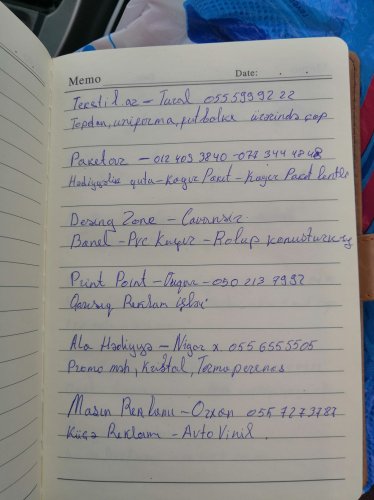 Memo Date:
Texstil az - Tural 055 599 92 22
Topdan, uniforma, futbolka üzərində çap
Paketaz - 012 409 3840 - 077 344 48 48
Hədiyyəlik quta - Kağız Paket - Kağız Paket Lentlə
Desing Zone - Cavanşir
Banel - Pvc Kağız - Rolap
Print Point - 050 212 7992
Qarışıq Reklam işləri
Ala Hədiyyə - Nigar x. 055 6555505
Promo məh, Kristal,
Maşın Reklamı - Orxan 055 7273787
Küçə Reklamı - Avto Vinil.